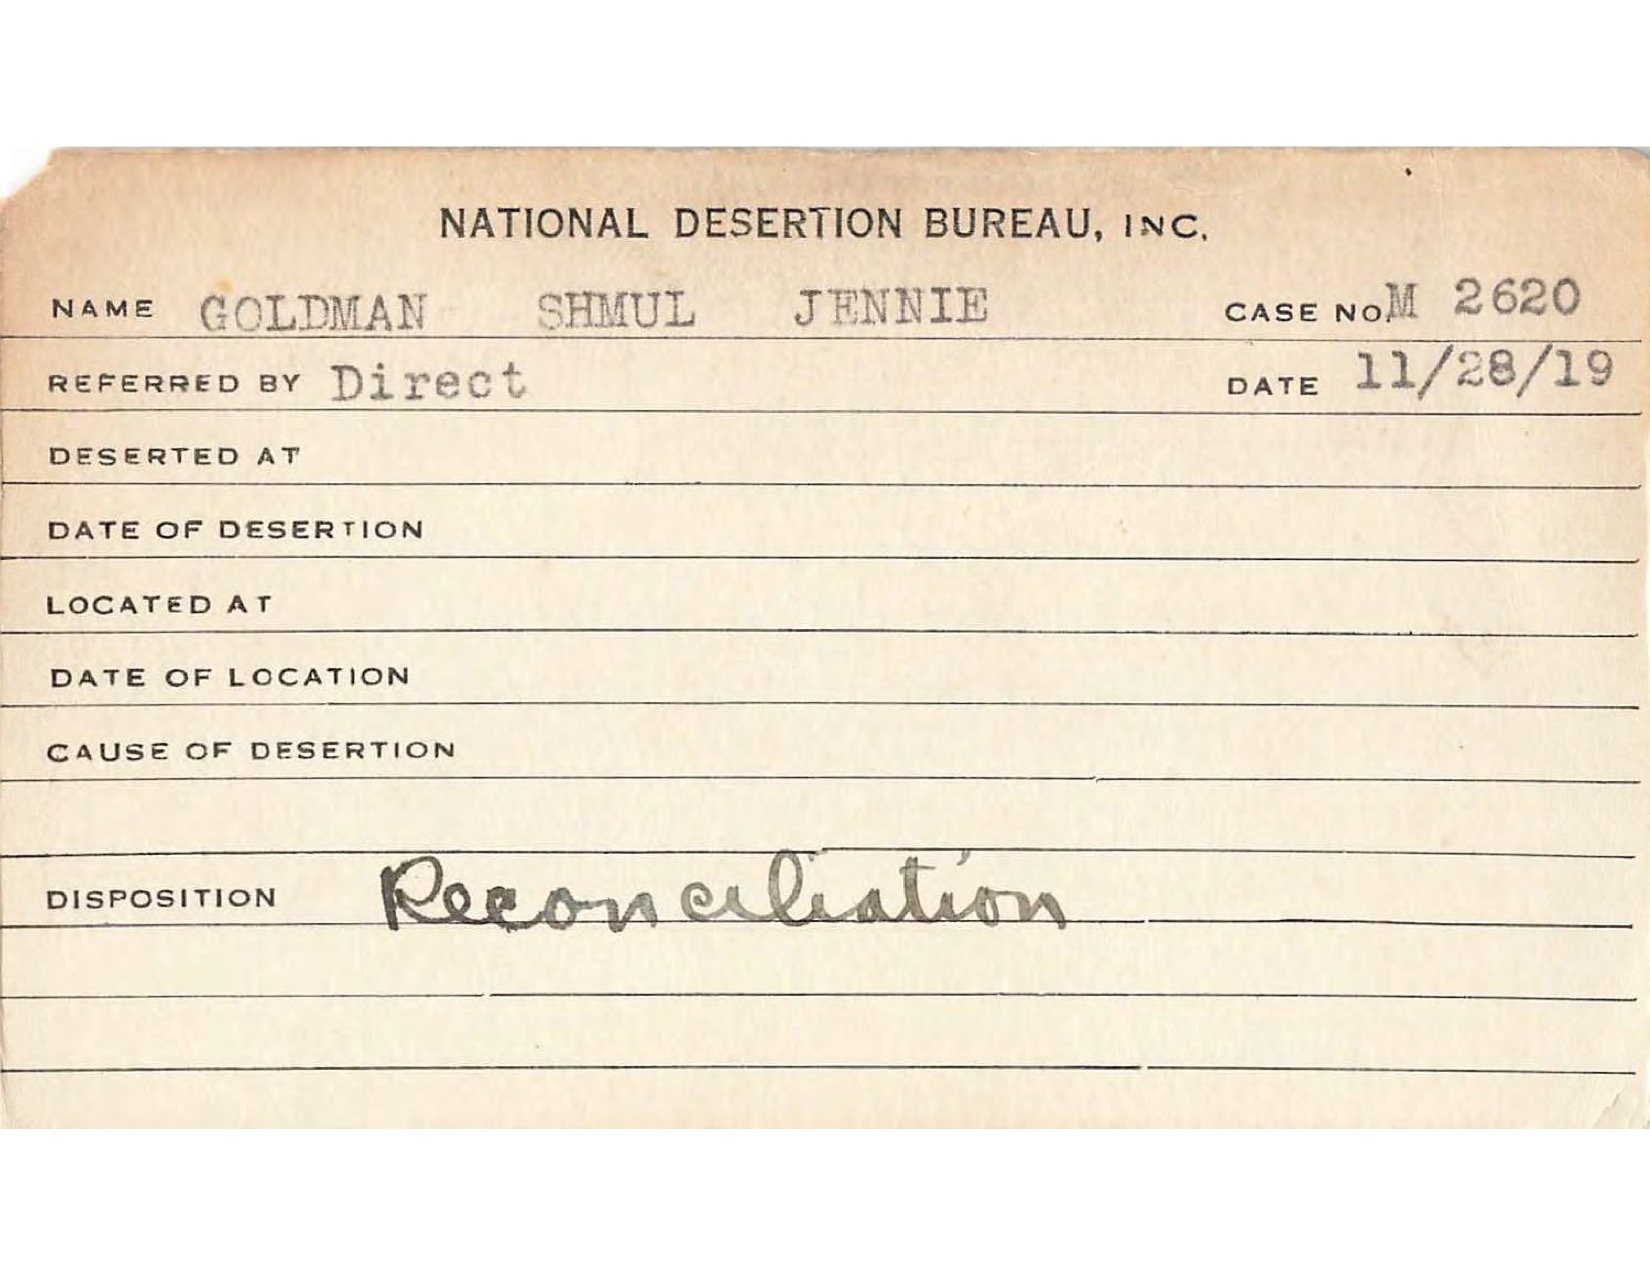 NATIONAL DESERTION BUREAU, INC.
NAME GOLDMAN SHMUL JENNIE CASE NO. M 2620
REFERRED BY Direct DATE 11/28/19
DESERTED AT
DATE OF DESERTION
LOCATED AT
DATE OF LOCATION
CAUSE OF DESERTION
DISPOSITION Reconciliation